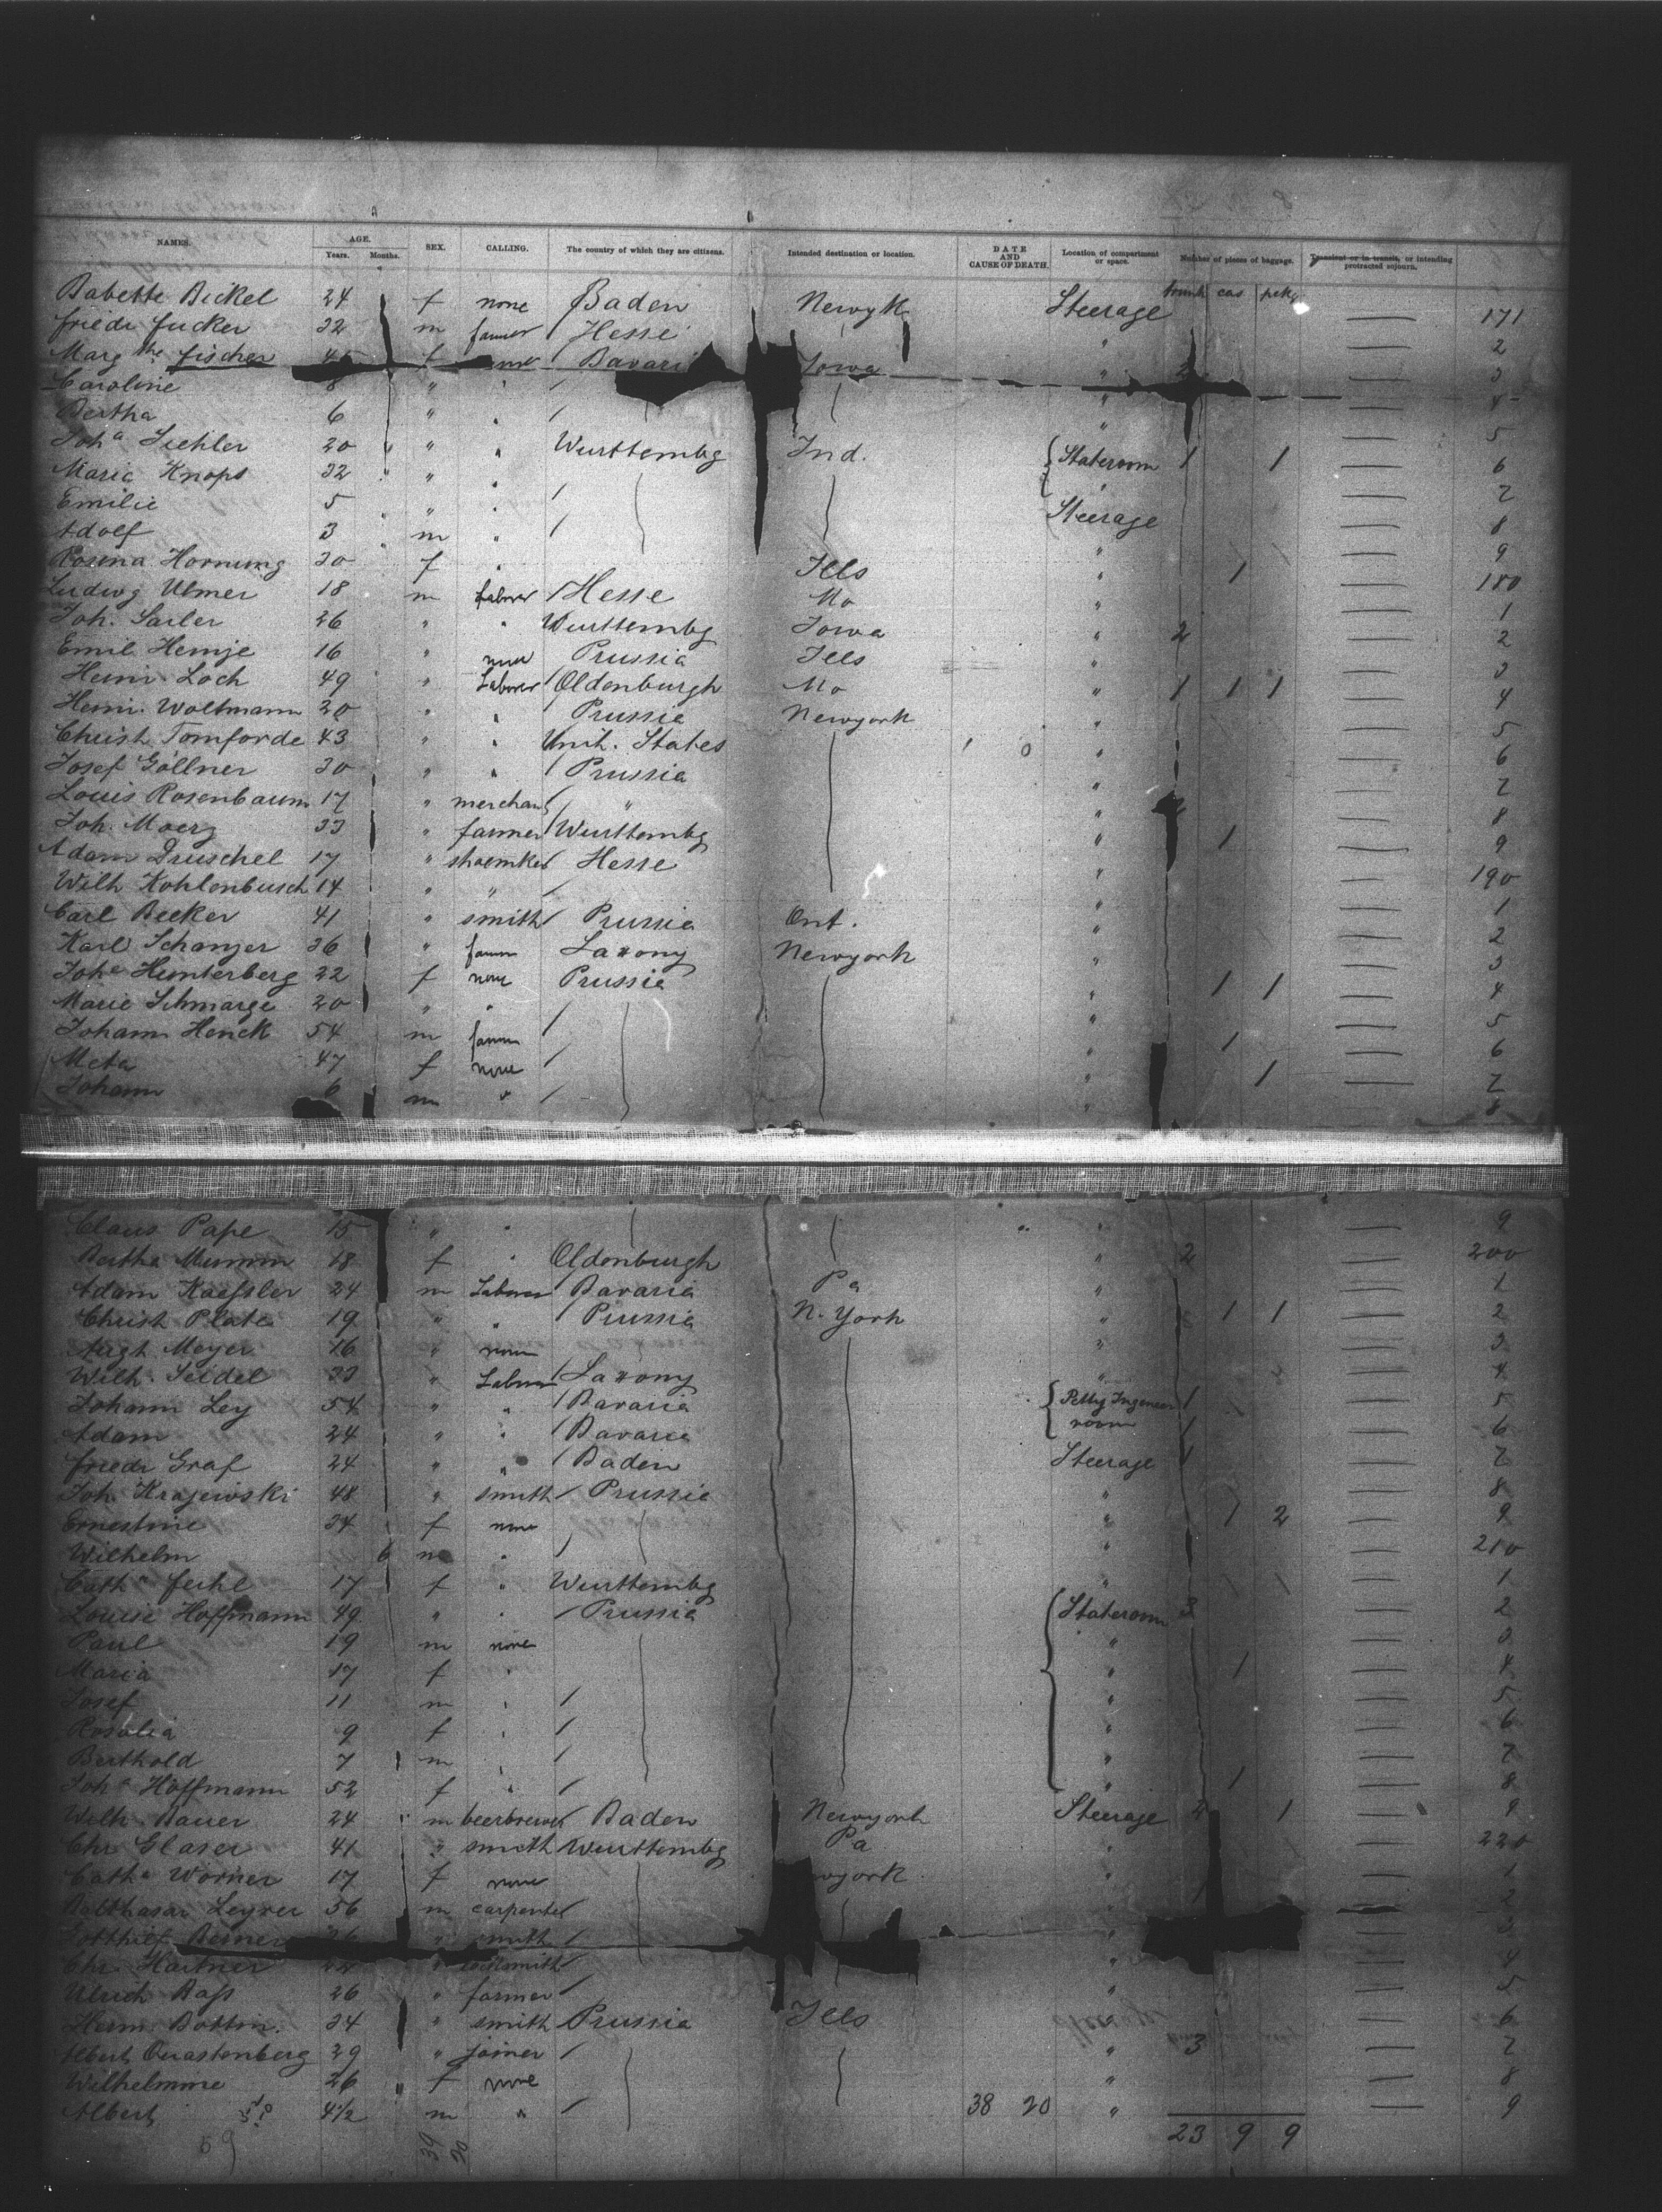 NAMES. AGE. SEX. CALLING. The country of which they are citizens. Intended destination or location. DATE AND CAUSE OF DEATH. Location of compartment or space. Number of pieces of baggage. Transient or in transit, or intending protracted sojourn.
Years. Months.
trunk cas pckg
Babette Bickel 24 f none Baden Newyk Steerage 171
Friedr Fucker 32 m farmer / Hesse " 2
Marg the Fischer 45 f Bavari Iowa " 3
Caroline 8 " " / " 4
Bertha 6 " " / " 5
Joh a 20 " " Wurttembg Ind. Stateroom 1 1 6
Marie Knops 32 " " " 7
Emilie 5 " " / Steerage 8
Adolf 3 m " / " 9
Rosina Hornung 20 f " Ills " 1 180
Ludwig Ulmer 18 m Laborer / Hesse Mo " 1
Joh. Sailer 26 " " Wurttembg Iowa " 2 2
Emil Hemje 16 " none Prussia Ills " 3
Heinr. Loch 49 " Laborer / Oldenburgh Mo " 1 1 1 4
Heinr. Woltmann 20 " " Prussia Newyork " 5
Christ. Tomforde 43 " " Unit. States " 6
Josef Göllner 30 " " / Prussia " 7
Louis Rosenbaum 17 " merchant / " " 8
Joh. Moerz 33 " farmer / Wurttembg " 1 9
Adam Druschel 17 " shoemker / Hesse " 190
Wilh Kohlenbusch 14 " " / " 1
Carl Becker 41 " smith / Prussia Ont. " 2
Karl Schanzer 36 " farmer Saxony Newyork " 3
Joh a Hunterberg 22 f none Prussia " 1 1 4
Marie Schmarge 20 " " " 5
Johann Henck 54 m farmer / " 1 6
Meta 47 f none / " 1 7
Johann 6 m " / " 8
Claus Pape 15 " " " 9
Bertha Mumm 18 f " Oldenburgh " 2 200
Adam Kaessler 24 m Laborer Bavaria Pa " 1
Christ Plate 19 " " / Prussia N. York " 1 1 2
Augt. Meyer 16 " none " 3
Wilh. Seidel 33 " Laborer / Saxony " 4
Johann Ley 54 " " / Bavaria Petty Ingeneer 1 5
Adam 24 " " / Bavaria room 1 6
Friedr Graf 24 " " / Baden Steerage 1 7
Joh. Krajewski 48 " smith / Prussia " 8
Ernestine 34 f none / " 1 2 9
Wilhelm 6 m " / " 210
Cath a Feihl 17 f " Wurttembg " 1
Louise Hoffmann 49 " " / Prussia Stateroom 3 2
Paul 19 m none " 3
Maria 17 f " " 1 4
Josef 11 m " / " 5
Rosalia 9 f " / " 6
Berthold 7 m " / " 7
Joh a Hoffmann 52 f " / " 1 8
Wilh. Bauer 24 m beerbrewer / Baden Newyork Steerage 2 1 9
Chr Glaser 41 " smith Wurttembg Pa " 220
Cath a Wörner 17 f none wyork " 1
Balthasar Leyrer 56 m carpenter / " 2
Gotthilf 26 " smith / " 3
Chr Hartner " / " 4
Ulrich Bass 26 " farmer / " 5
Herm. Bottin. 34 " smith / Prussia Ills " 6
Albert Quastenberg 29 " joiner / " 3 7
Wilhelmine 26 " f none " 8
Albert 4 1/2 m " / 38 20 " 9
59 39 20 23 9 9